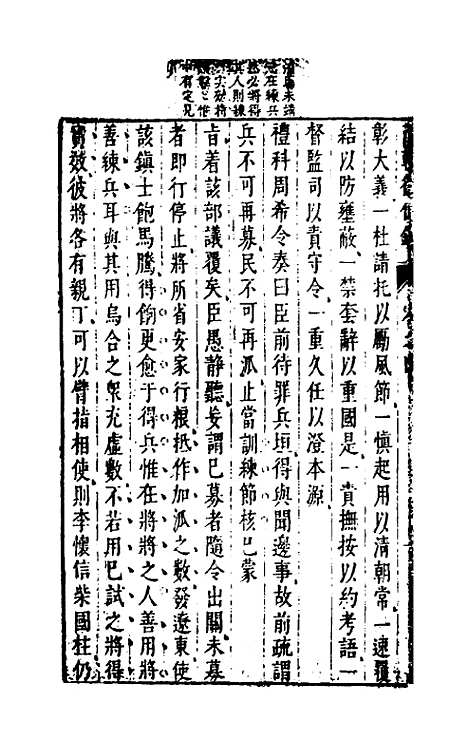 在練兵
必將得
其人則練
中有定見
彰大義一杜請托以勵風節一慎起用以清朝常一速覆
結以防壅蔽一禁套辭以重國是一責撫按以約考語一
督監司以責守令一重久任以澄本源
禮科周希令奏曰臣前待罪兵垣得與聞邊事故前疏謂
兵不可再募民不可再派止當訓練節核已蒙
旨着該部議覆矣臣愚靜聽妄謂已募者隨令出關未募
者即行停止將所省安家行粮抵作加派之數發遼東使
該鎮士飽馬騰得餉更愈于得兵惟在將將之人善用將
善練兵耳與其用烏合之衆充虛數不若用已試之將得
實效彼將各有親丁可以臂指相使則李懷信柴國柱仍